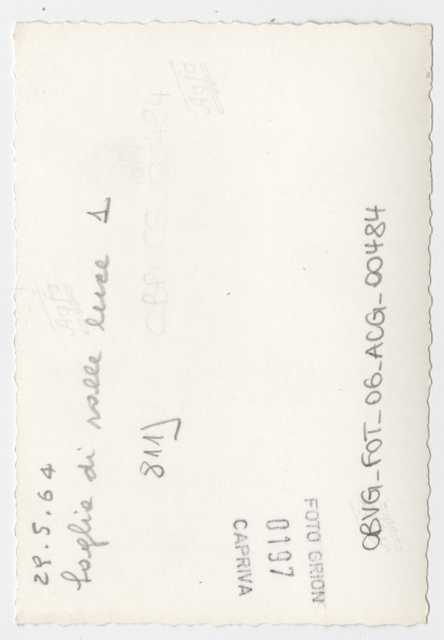 29.5.64
Soglia di valle luce 1
811
FOTO GRION
0197
CAPRIVA
OBVG_FOT_06_ACG_00484
Agfa
Agfa